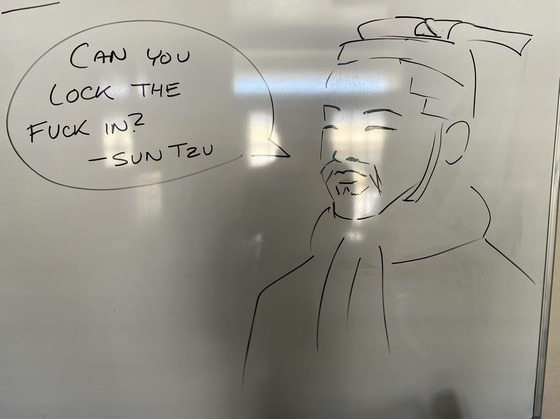 CAN YOU
LOCK THE
FUCK IN?
-SUN TZU